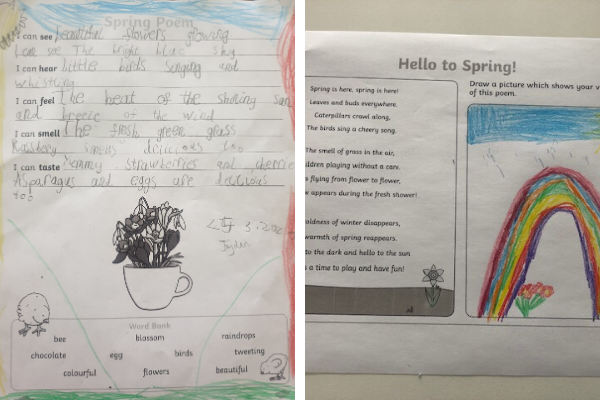 Spring Poem
I can see beautiful flowers growing
I can see The bright blue sky
I can hear little birds singing and
whistling
I can feel The heat of the shining sun
and breeze of the wind
I can smell The fresh green grass
delicious too
I can taste Yummy strawberries and
Asparagus and eggs are delicious
too
Jayden
Word Bank
bee blossom raindrops
chocolate egg birds tweeting
colourful flowers beautiful
Hello to Spring!
Spring is here, spring is here!
Leaves and buds everywhere.
Caterpillars crawl along,
The birds sing a cheery song.
The smell of grass in the air,
ldren playing without a care.
s flying from flower to flower,
w appears during the fresh shower!
oldness of winter disappears,
warmth of spring reappears.
to the dark and hello to the sun
s a time to play and have fun!
Draw a picture which shows your v
of this poem.